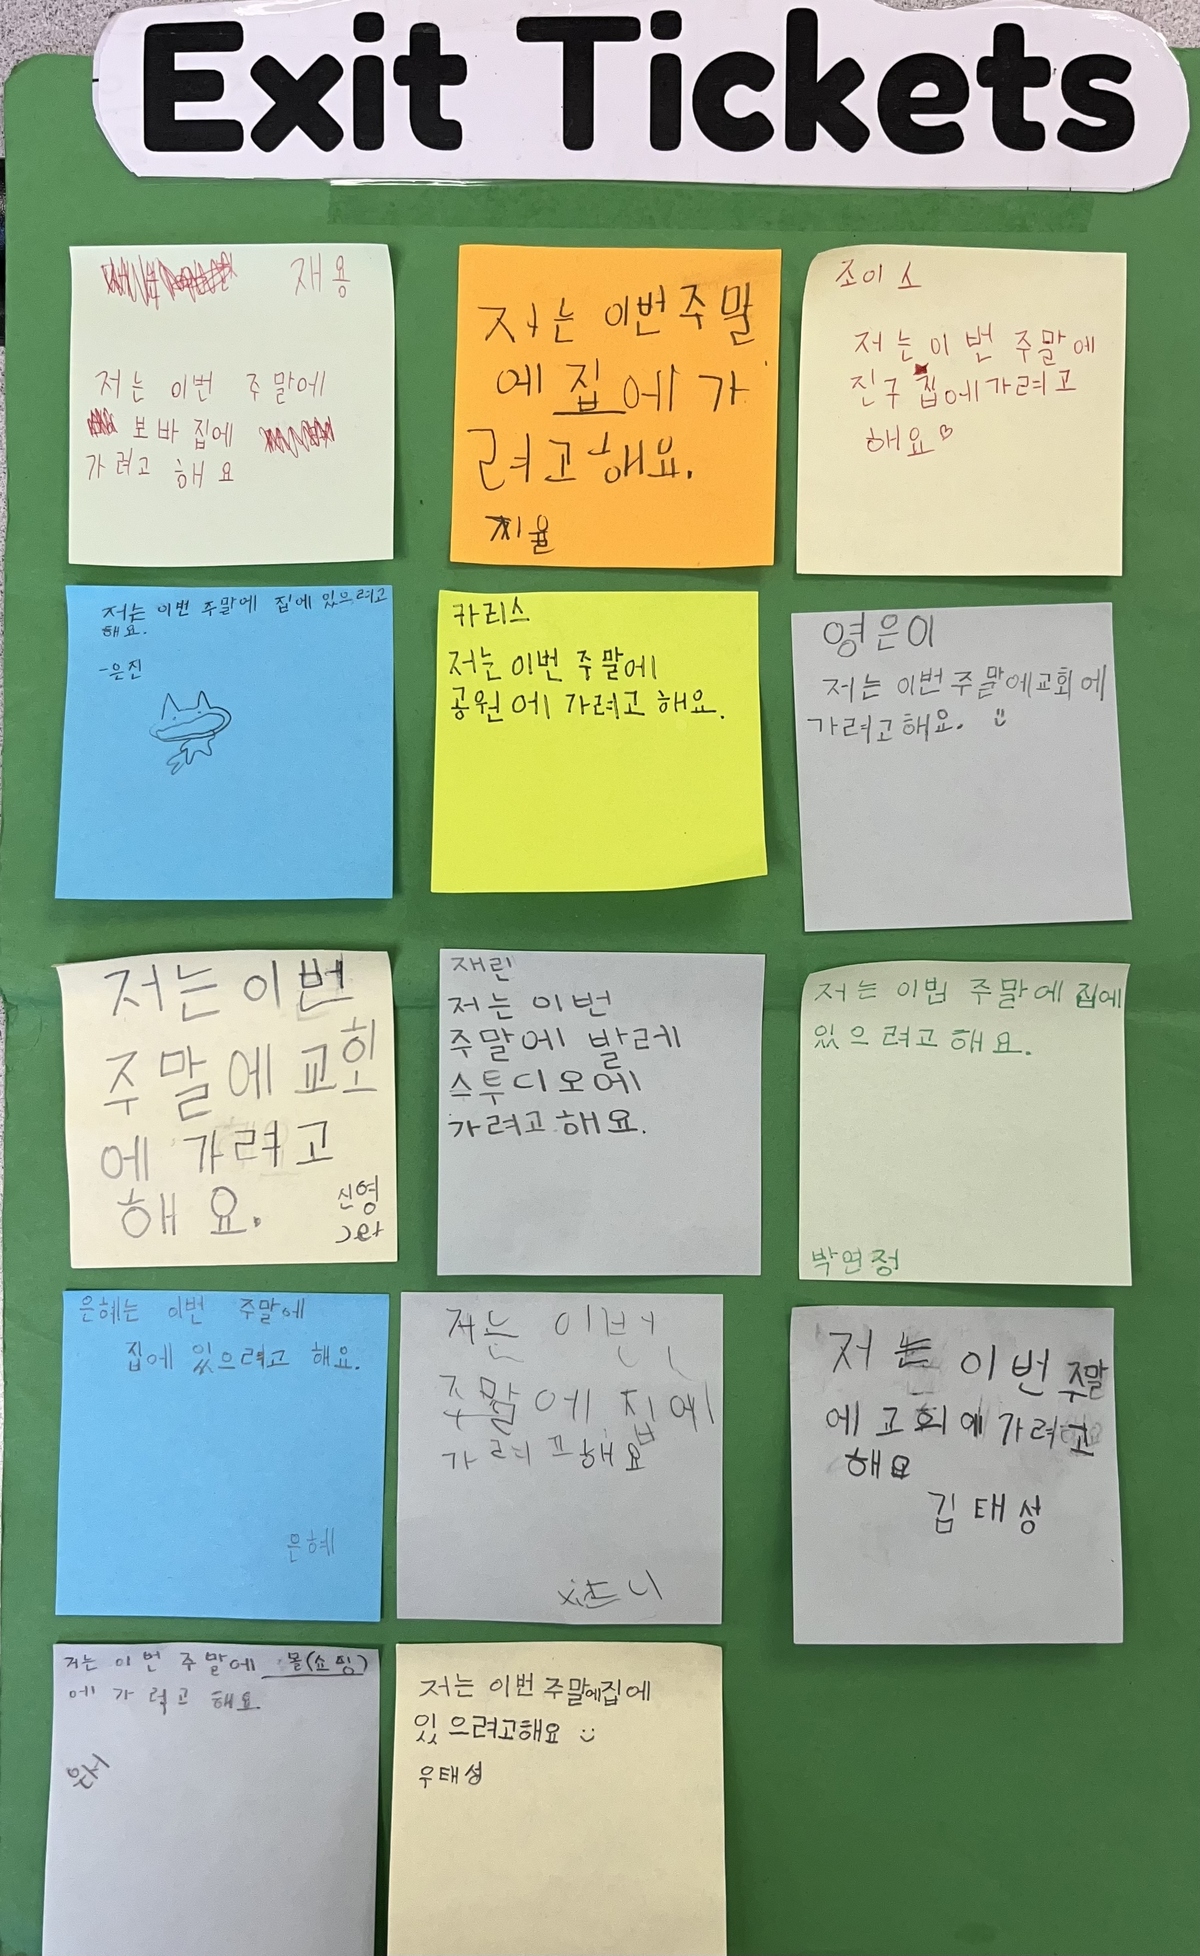 Exit Tickets
재용
저는 이번 주말에
보바 집에
가려고 해요
저는 이번 주말
에 집에 가
려고 해요.
찌율
조이스
저는 이번 주말에
진구 집에 가려고
해요♡
저는 이번 주말에 집에 있으려고
해요.
-은진
카리스
저는 이번 주말에
공원에 가려고 해요.
영은이
저는 이번 주말에 교회에
가려고 해요.
저는 이번
주말에 교회
에 가려고
해요.
신영
재린
저는 이번
주말에 발레
스투디오에
가려고 해요.
저는 이법 주말에 집에
있으려고 해요.
박연정
은혜는 이번 주말에
집에 있으려고 해요.
은혜
저는 이번
주말에 집에
가려고해요
저는 이번 주말
에 교회에 가려고
해요
김태성
저는 이번 주말에 몰(쇼핑)
에 가력고 해요
저는 이번 주말에 집에
있으려고해요
우태성